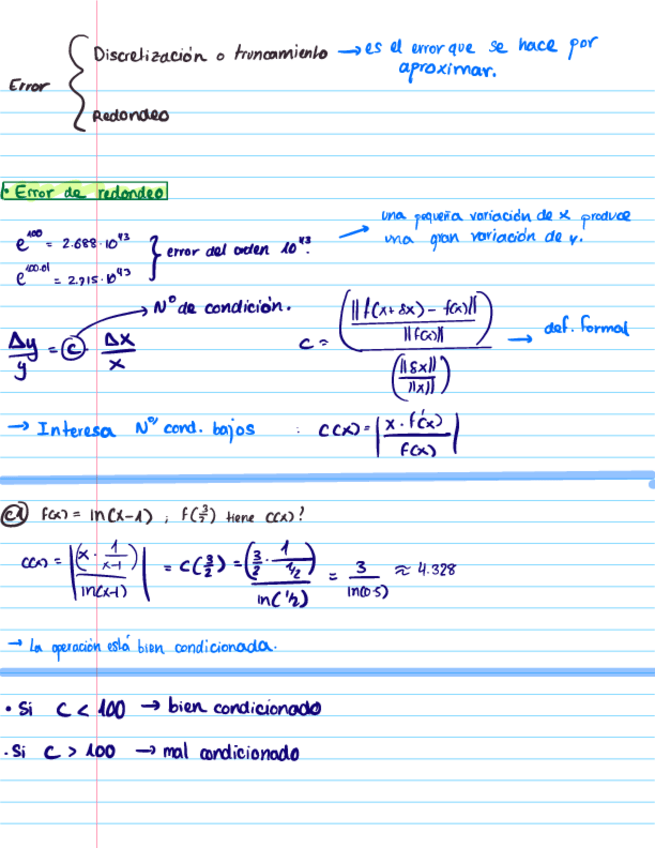 Error { Discretización o truncamiento → es el error que se hace por
aproximar.
Redondeo
• Error de redondeo
e^100 = 2.688·10^43
e^100.01 = 2.715·10^43
} error del orden 10^43.
→ una pequeña variación de x produce
una gran variación de y.
Δy/y = c · Δx/x
→ Nº de condición.
c = (||f(x+δx) - f(x)|| / ||f(x)||) / (||δx|| / ||x||) → def. formal
→ Interesa Nº cond. bajos : c(x) = |x·f'(x) / f(x)|
e1 f(x) = ln(x-1) ; f(3/2) tiene c(x)?
c(x) = |(x · 1/(x-1)) / ln(x-1)| = c(3/2) = (3/2 · 1/(1/2)) / ln(1/2) = 3/ln(0.5) ≈ 4.328
→ La operación está bien condicionada.
• Si c < 100 → bien condicionado
· Si c > 100 → mal condicionado